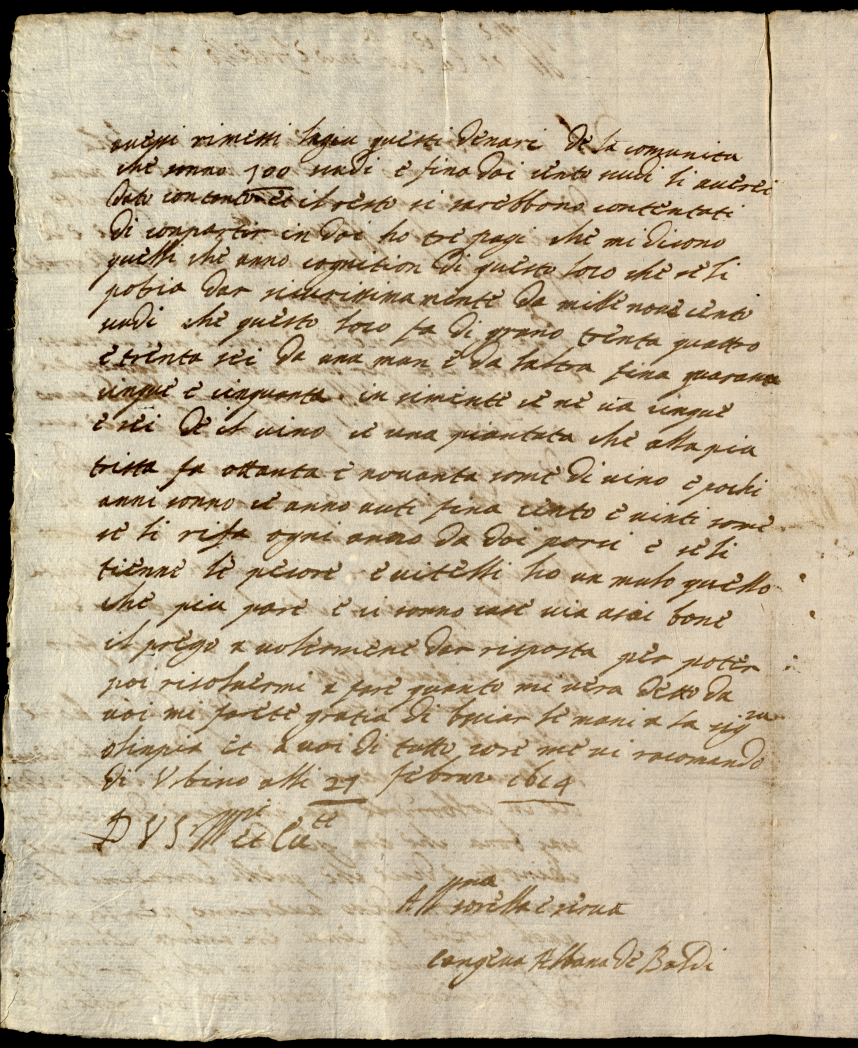 avessi rimessi lagiu questi denari de la comunita
che sonno 700 scudi e fina doi cento scudi li averei
dato contento et il resto si sarebbono contentati
di conpartir in doi ho tre pagi che mi dicono
quelli che anno cognition di questo loco che se li
potria dar sicurissimamente da mille nove cento
scudi che questo loco fa di grano trenta quattro
e trenta sei da una man e da laltra fina quaranta
cinque e cinquanta in simente se ne va cinque
e sei de il vino ce una piantata che alla piu
trista fa ottanta e novanta some di vino e pochi
anni sonno se anno auti fina cento e vinti some
se li rifa ogni anno da doi porci e se li
tienne le pecore e vitelli ho un mulo quello
che piu pare e ci sonno case via asai bone
il prego a volermene dar risposta per poter
poi risolvermi a fare quanto mi vera detto da
voi mi farete gratia di basciar le mani a la sig.ra
olimpia et a voi di tutto core me vi racomando
di Urbino alli 27 febrar 1614
D V S Ill.re et Ecc.te
Aff.ma sorella e serva
Albana de Baldi